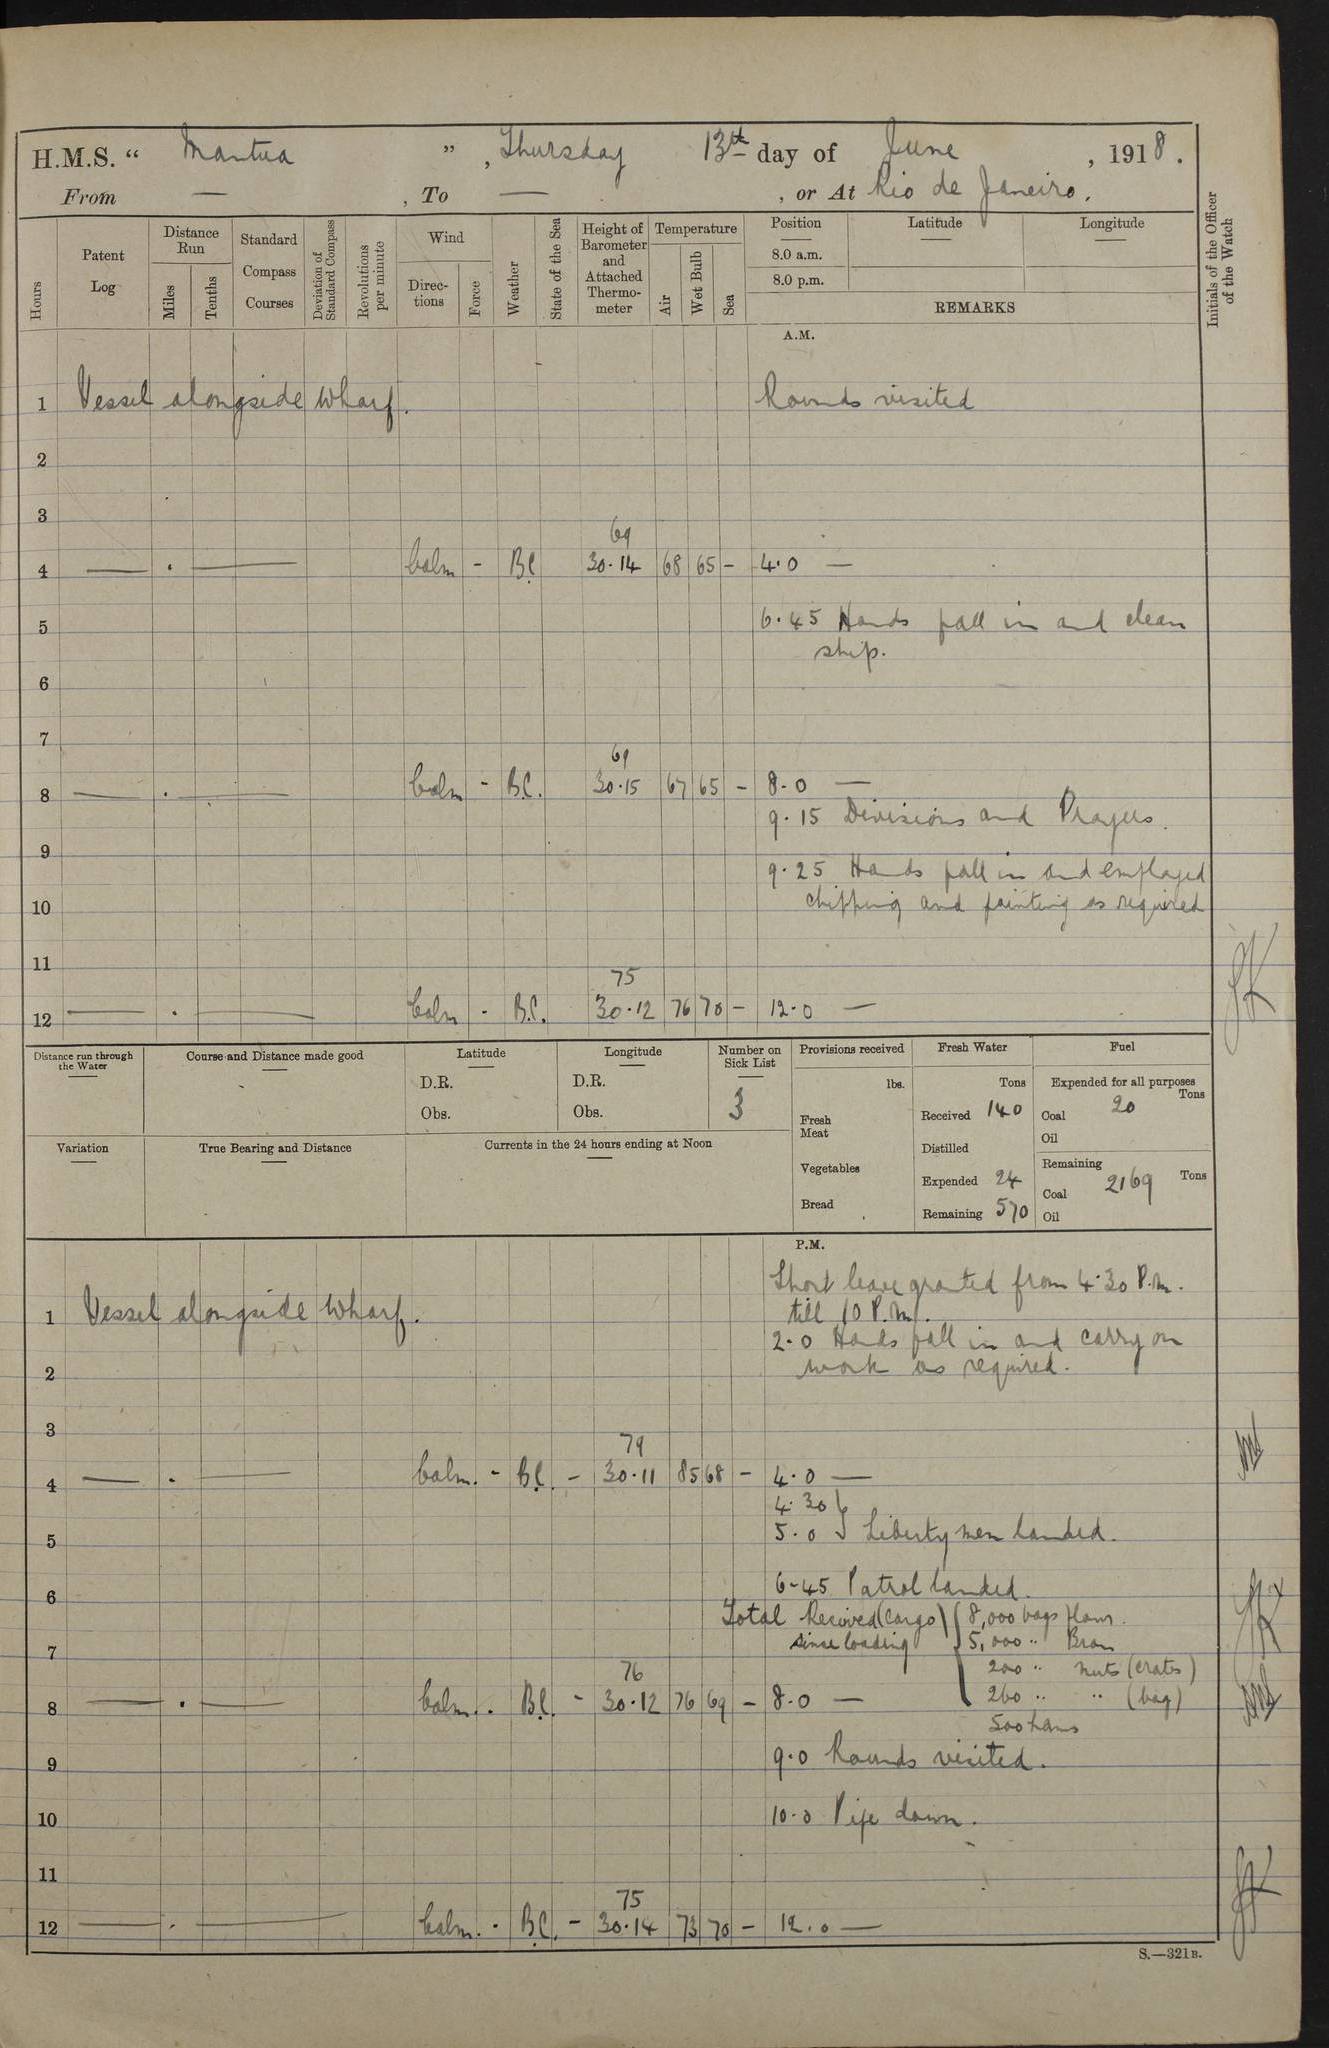 H.M.S. " Mantua " , Thursday 13th day of June , 1918.
From — , To — , or At Rio de Janeiro.
Hours
Patent Log
Distance Run
Miles
Tenths
Standard Compass Courses
Deviation of Standard Compass
Revolutions per minute
Wind
Direc-tions
Force
Weather
State of the Sea
Height of Barometer and Attached Thermo-meter
Temperature
Air
Wet Bulb
Sea
Position
8.0 a.m.
8.0 p.m.
Latitude
Longitude
REMARKS
Initials of the Officer of the Watch
A.M.
1 Vessel alongside Wharf. Rounds visited
2
3
69
4 — . — Calm - B.C 30.14 68 65 – 4.0 —
5 6.45 Hands fall in and clean
ship.
6
7
69
8 — . — Calm - B.C. 30.15 67 65 – 8.0 —
9.15 Divisions and Prayers.
9
9.25 Hands fall in and employed
10 chipping and painting as required
11
75
12 — . — Calm - B.C. 30.12 76 70 – 12.0 —
Distance run through the Water
Course and Distance made good
Latitude
D.R.
Obs.
Longitude
D.R.
Obs.
Number on Sick List
3
Provisions received
lbs.
Fresh Meat
Vegetables
Bread
Fresh Water
Tons
Received 140
Distilled
Expended 24
Remaining 570
Fuel
Expended for all purposes
Tons
Coal 20
Oil
Remaining
Tons
Coal 2169
Oil
Variation
True Bearing and Distance
Currents in the 24 hours ending at Noon
P.M.
Short leave granted from 4.30 P.m.
1 Vessel alongside Wharf. till 10 P.m.
2.0 Hands fall in and carry on
2 work as required.
3
79
4 — . — Calm. - B.C. – 30.11 85 68 – 4.0 —
4.30 }
5 5.0 } Liberty men landed.
6 6-45 Patrol landed.
Total Received (cargo) { 8,000 bags flour.
7 since loading 5,000 " Bran
200 " nuts (crates)
76
8 — . — Calm. . B.C. - 30.12 76 69 – 8.0 — 260 " " (bag)
500 hams
9 9.0 Rounds visited.
10 10.0 Pipe down.
11
75
12 — . — Calm. - B.C. – 30.14 73 70 – 12.0 —
S.—321B.